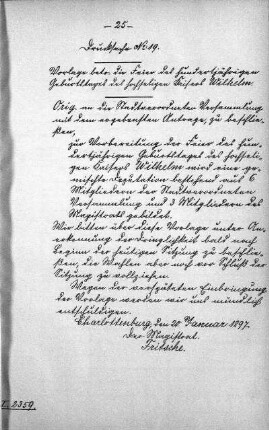 - 25 -
Drucksache No 19.
Vorlage betr. die Feier des hundertjährigen
Geburtstages des hochseligen Kaisers Wilhelm.
Orig. an der Stadtverordneten Versammlung
mit dem ergebensten Antrage, zu beschlie-
ßen,
zur Vorbereitung der Feier des hun-
dertjährigen Geburtstages des hochseli-
gen Kaisers Wilhelm wird eine ge-
mischte Deputation bestehend aus 6
Mitgliedern der Stadtverordneten
Versammlung und 3 Mitgliedern des
Magistrats gebildet.
Wir bitten über diese Vorlage unter An-
erkennung der Dringlichkeit bald nach
Beginn der heutigen Sitzung zu beschlie-
ßen, die Wahlen aber noch vor Schluß der
Sitzung zu vollziehen.
Wegen der verspäteten Einbringung
der Vorlage werden wir uns mündlich
entschuldigen.
Charlottenburg, den 20 Januar 1897.
Der Magistrat.
Fritsche.
I. 2359.